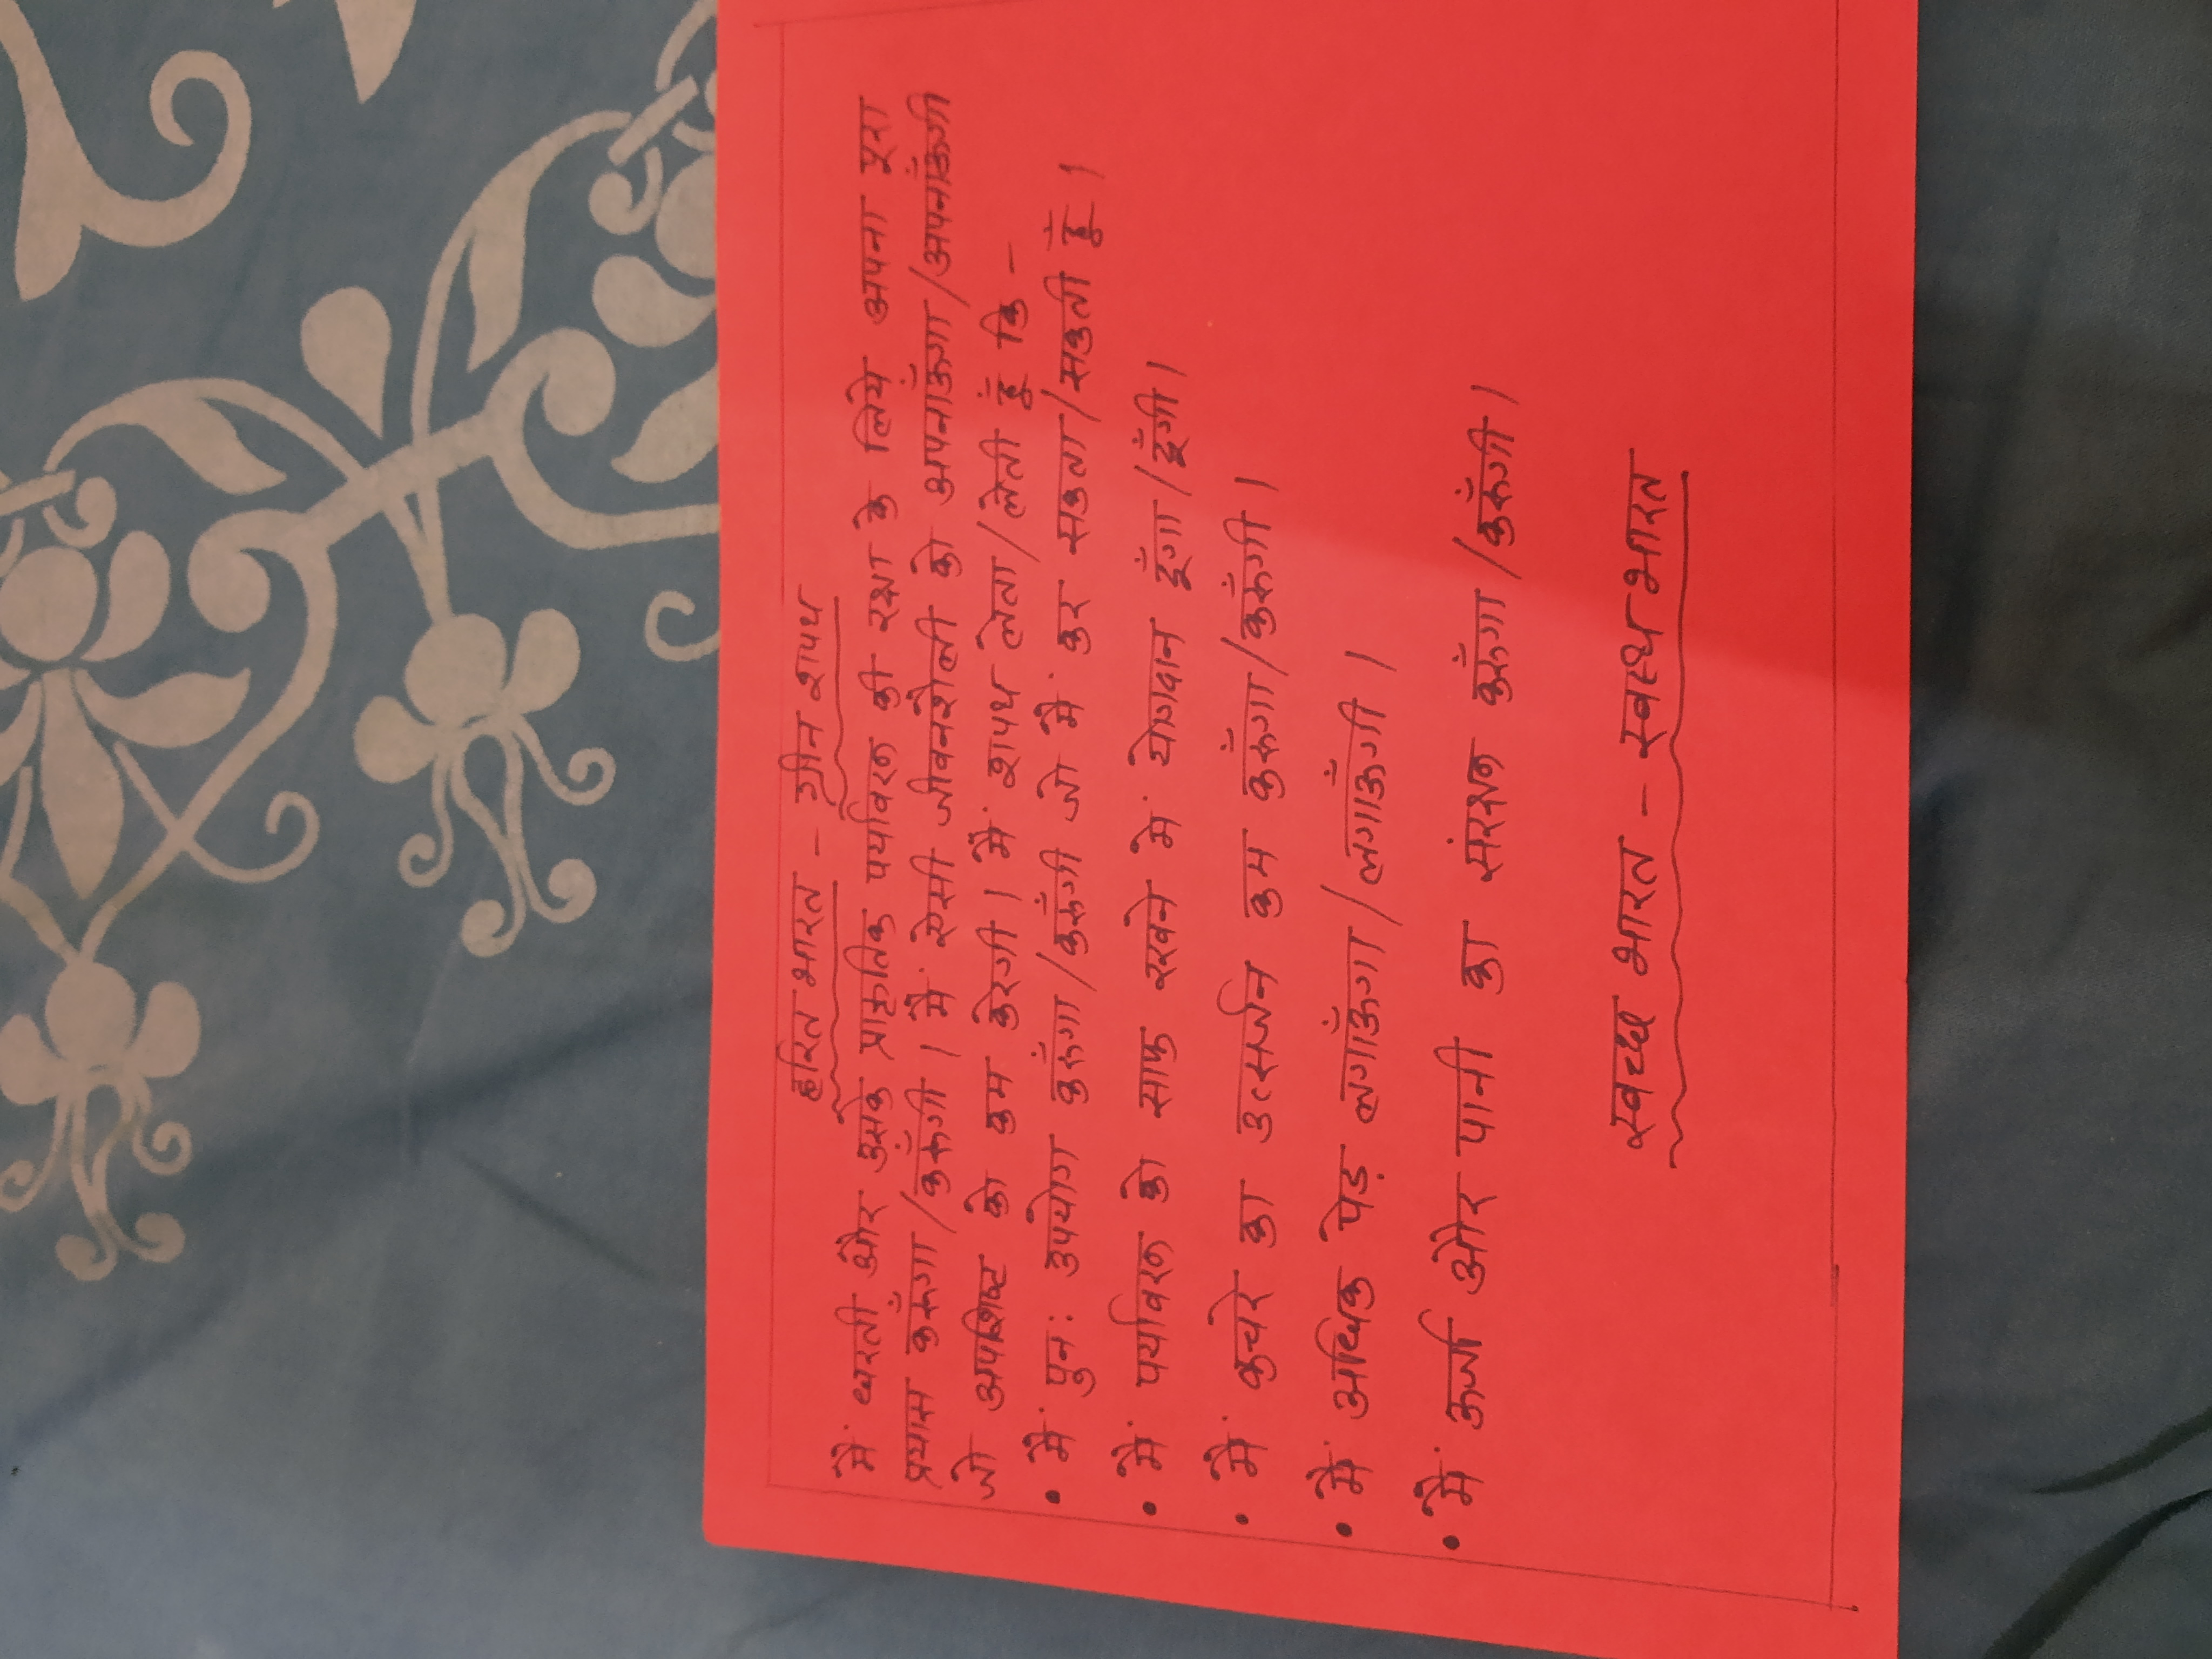 हरित भारत - ग्रीन शपथ
मैं धरती और उसके प्राकृतिक पर्यावरण की रक्षा के लिये अपना पूरा
प्रयास करूँगा/करूँगी । मैं ऐसी जीवनशैली को अपनाऊँगा/अपनाऊँगी
जो अपशिष्ट को कम करेगी । मैं शपथ लेता/लेती हूँ कि -
• मैं पुनः उपयोग करूँगा/करूँगी जो मैं कर सकता/सकती हूँ ।
• मैं पर्यावरण को साफ रखने में योगदान दूँगा/दूँगी ।
• मैं कचरे का उत्सर्जन कम करूँगा/करूँगी ।
• मैं अधिक पेड़ लगाऊँगा/लगाऊँगी ।
• मैं ऊर्जा और पानी का संरक्षण करूँगा/करूँगी ।
स्वच्छ भारत - स्वस्थ भारत